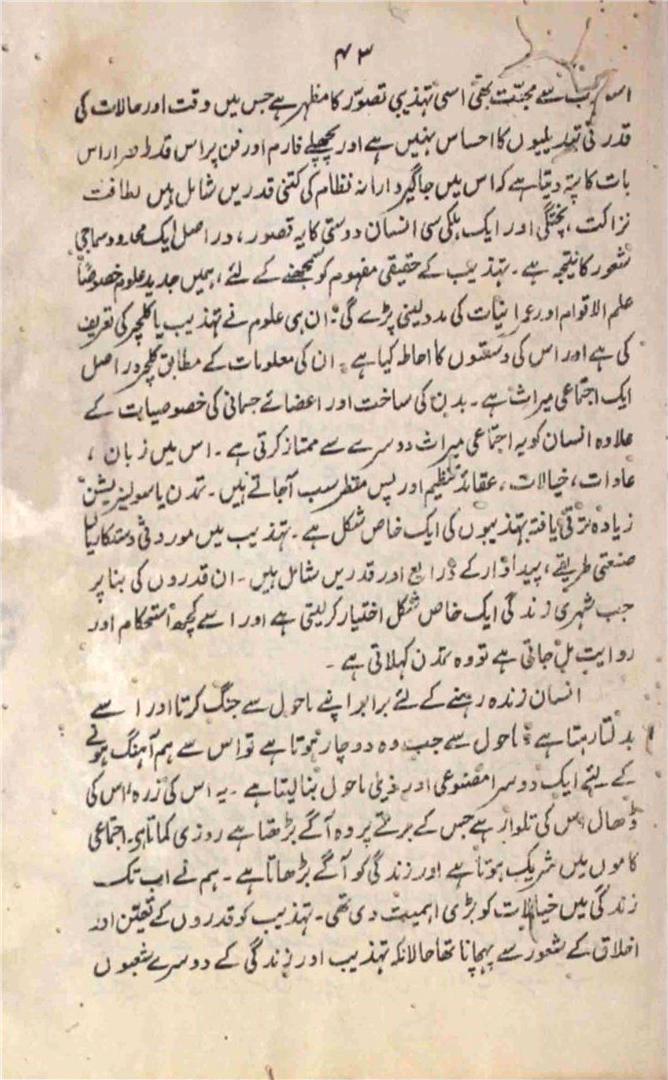 ۴۳
سے محبت بھی اسی تہذیبی تصوّر کا مظہر ہے جس میں وقت اور حالات کی
قدرتی تبدیلیوں کا احساس نہیں ہے اور پچھلے فارم اور فن پر اس قدر اصرار اس
بات کا پتہ دیتا ہے کہ اس میں جاگیردارانہ نظام کی کتنی قدریں شامل ہیں لطافت
نزاکت، پختگی اور ایک ہلکی سی انسان دوستی کا یہ تصور، دراصل ایک محدود سماجی
شعور کا نتیجہ ہے۔ تہذیب کے حقیقی مفہوم کو سمجھنے کے لئے، ہمیں جدید علوم خصوصاً
علم الاقوام اور عمرانیات کی مدد لینی پڑے گی۔ ان ہی علوم نے تہذیب یا کلچر کی تعریف
کی ہے اور اس کی وسعتوں کا احاطہ کیا ہے۔ ان کی معلومات کے مطابق کلچر دراصل
ایک اجتماعی میراث ہے۔ بدن کی ساخت اور اعضائے جسمانی کی خصوصیات کے
علاوہ انسان کو یہ اجتماعی میراث دوسرے سے ممتاز کرتی ہے۔ اس میں زبان،
عادات، خیالات، عقائد تنظیم اور پس منظر سب آجاتے ہیں۔ تمدن یا سولیزیشن
زیادہ ترقی یافتہ تہذیبوں کی ایک خاص شکل ہے۔ تہذیب میں موروثی دستکاریاں
صنعتی طریقے، پیداوار کے ذرایع اور قدریں شامل ہیں۔ ان قدروں کی بنا پر
جب شہری زندگی ایک خاص شکل اختیار کر لیتی ہے اور اسے کچھ استحکام اور
روایت مل جاتی ہے تو وہ تمدن کہلاتی ہے۔
انسان زندہ رہنے کے لئے برابر اپنے ماحول سے جنگ کرتا اور اسے
بدلتا رہتا ہے۔ ماحول سے جب وہ دوچار ہوتا ہے تو اس سے ہم آہنگ ہونے
کے لئے ایک دوسرا مصنوعی اور ذیلی ماحول بنا لیتا ہے۔ یہ اس کی زرہ، اس کی
ڈھال اس کی تلوار ہے جس کے برتے پر وہ آگے بڑھتا ہے روزی کماتا ہے۔ اجتماعی
کاموں میں شریک ہوتا ہے اور زندگی کو آگے بڑھاتا ہے۔ ہم نے اب تک
زندگی میں خیالات کو بڑی اہمیت دی تھی۔ تہذیب کو قدروں کے تعین اور
اخلاق کے شعور سے پہچانا تھا حالانکہ تہذیب اور زندگی کے دوسرے شعبوں